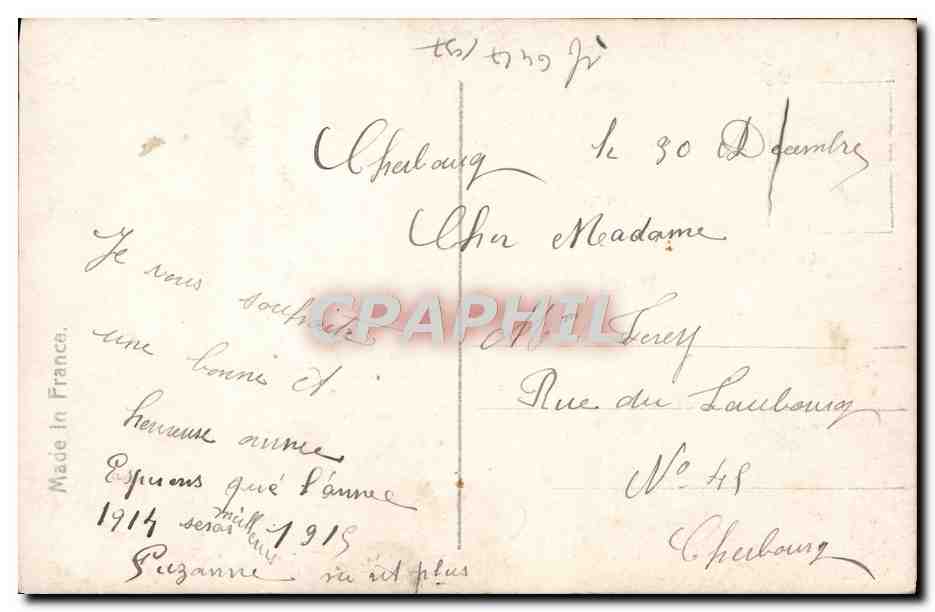 Cherbourg le 30 Decembre
Cher Madame
Je vous souhaite
une bonne et
heureuse annee
Esperons que l'annee
1914 seras meilleur 1915
Suzanne
plus
Mme Ferey
Rue du Faubourg
No 45
Cherbourg
Made in France.
CPAPHIL